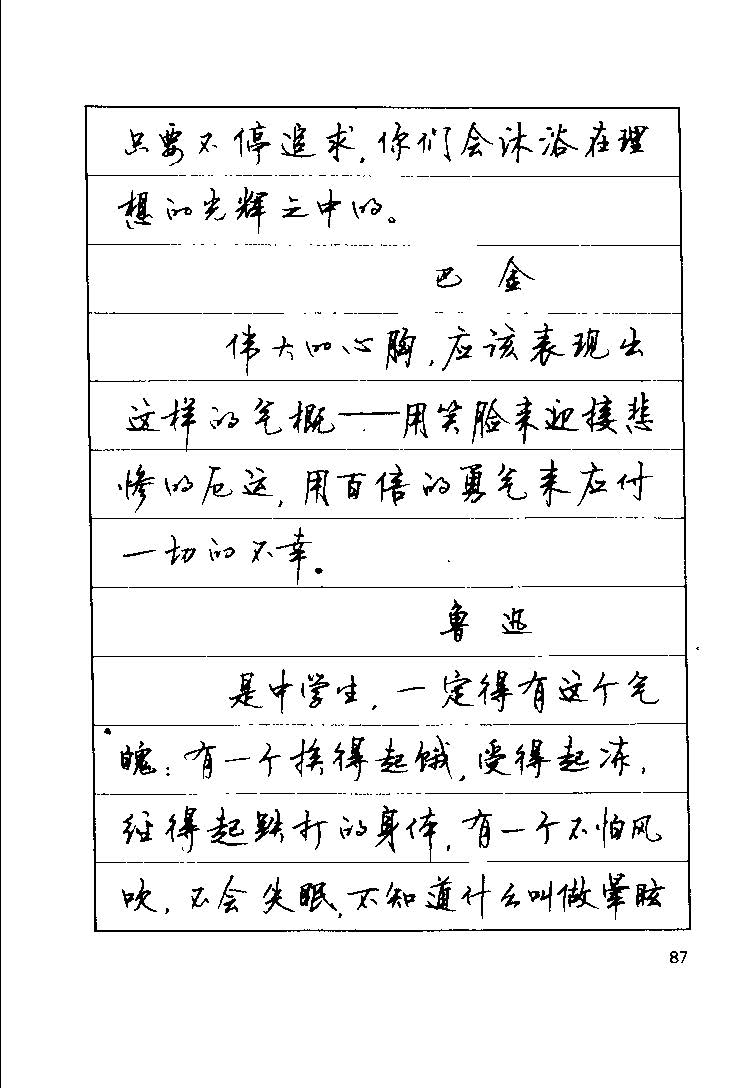 只要不停追求，你们会沐浴在理
想的光辉之中的。
巴 金
伟大的心胸，应该表现出
这样的气概——用笑脸来迎接悲
惨的厄运，用百倍的勇气来应付
一切的不幸。
鲁 迅
是中学生，一定得有这个气
魄：有一个挨得起饿，受得起冻，
经得起跌打的身体，有一个不怕风
吹，不会失眠，不知道什么叫做晕眩
87